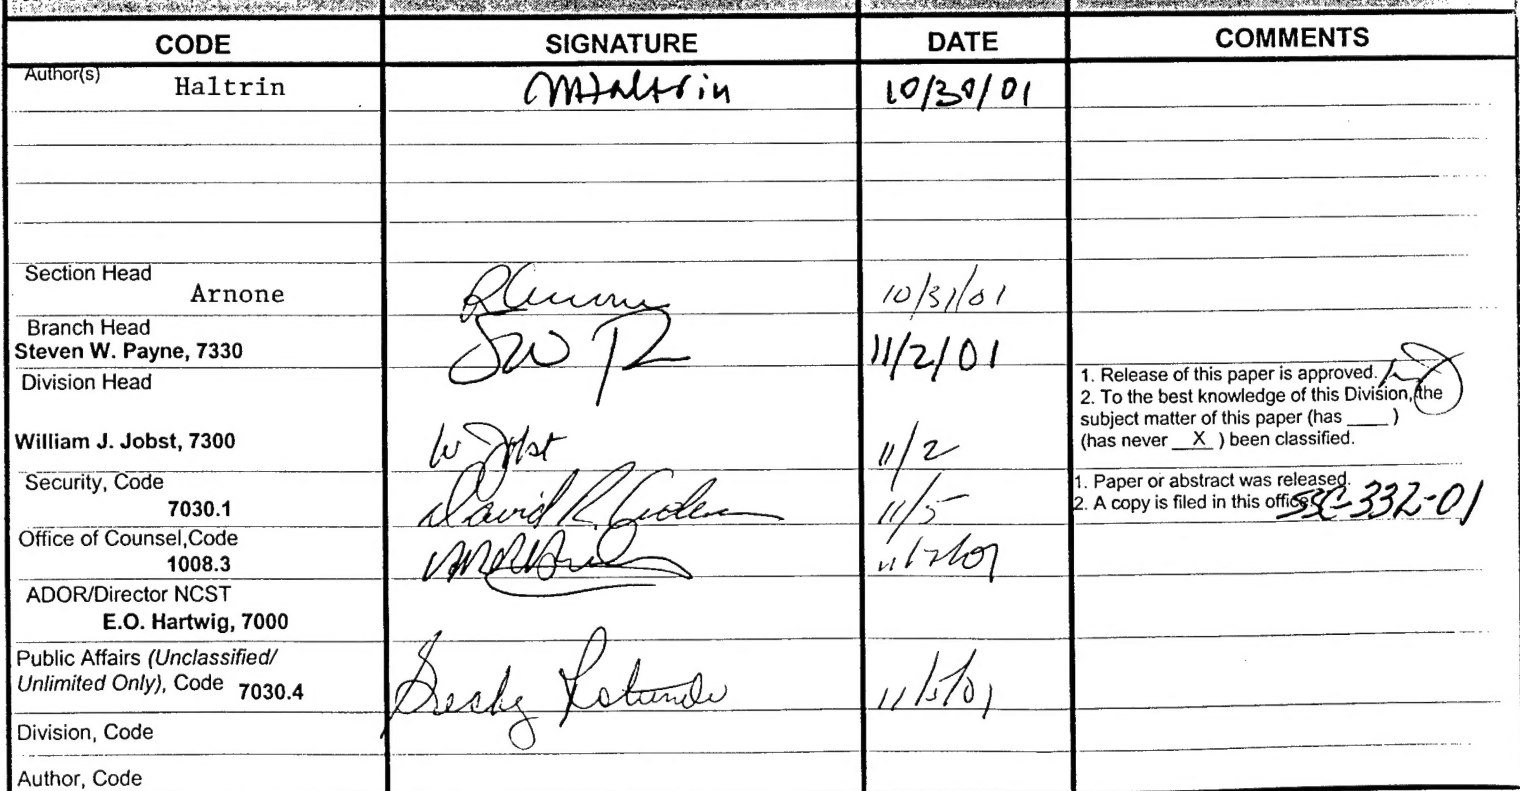 CODE SIGNATURE DATE COMMENTS
Author(s)
Haltrin MHaltrin 10/30/01
Section Head
Arnone RArnone 10/31/01
Branch Head
Steven W. Payne, 7330 SW P 11/2/01
Division Head
1. Release of this paper is approved.
2. To the best knowledge of this Division, the
subject matter of this paper (has ____ )
(has never X ) been classified.
William J. Jobst, 7300 W Jobst 11/2
Security, Code
7030.1 David R. 11/5
1. Paper or abstract was released.
2. A copy is filed in this office. SSC-332-01
Office of Counsel,Code
1008.3
ADOR/Director NCST
E.O. Hartwig, 7000
Public Affairs (Unclassified/
Unlimited Only), Code 7030.4 11/5/01
Division, Code
Author, Code